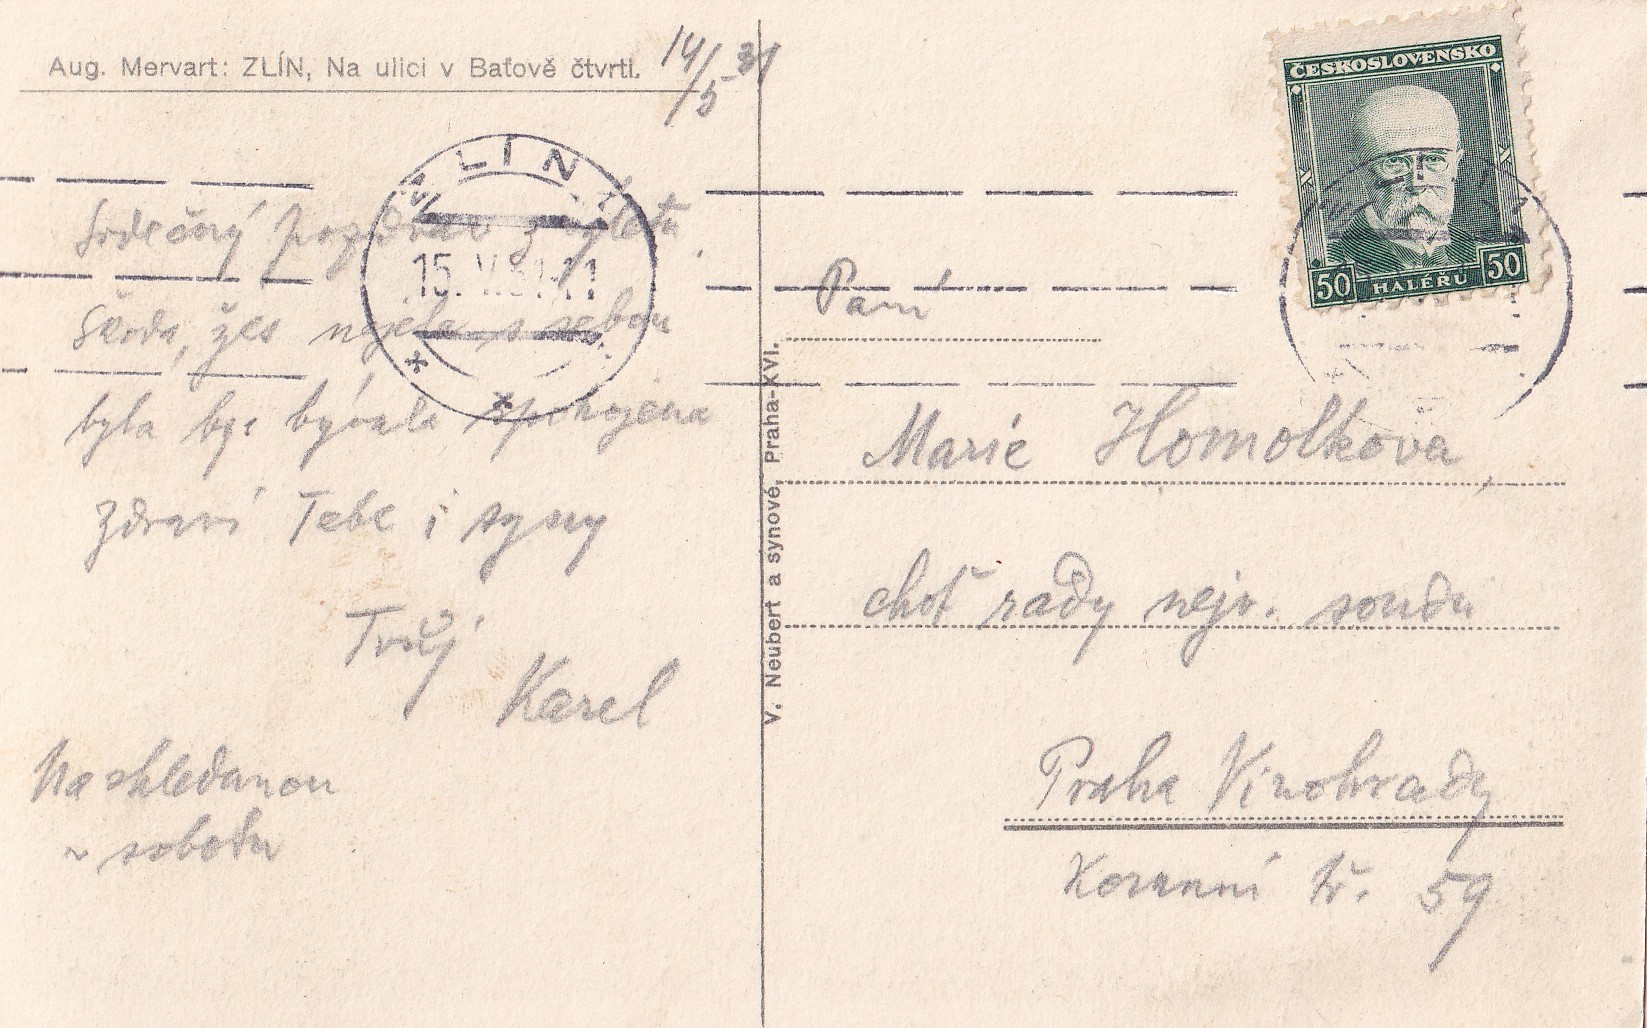 Aug. Mervart: ZLÍN, Na ulici v Baťově čtvrti.
14/5 31
ZLÍN
15. V. 31-11
Srdečný pozdrav z výletu.
Škoda, žes nejela s sebou
byla bys bývala spokojena
Zdraví Tebe i syny
Tvůj
Karel
Na shledanou
v sobotu
V. Neubert a synové, Praha-XVI.
ČESKOSLOVENSKO
50 HALÉŘŮ 50
Paní
Marie Homolková,
choť rady nejv. soudu
Praha Vinohrady
Korunní tř. 59